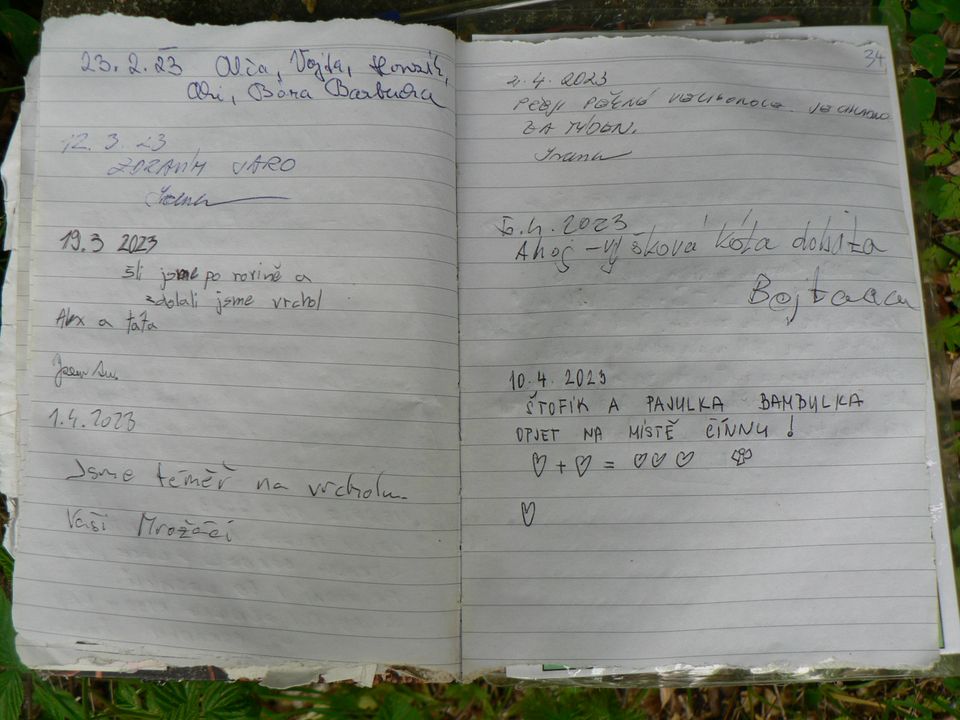 23.2.23 Olča, Vojta, Honzík,
Obi, Bára Barbucha
12.3.23
ZDRAVÍM JARO
Irena
19.3 2023
šli jsme po rovině a
zdolali jsme vrchol
Alex a táta
1.4.2023
Jsme téměř na vrcholu.
Vaši Mrožáčí
34
2.4.2023
PĚKNÉ VELIKONOCE
ZA TÝDEN.
Irena
6.4.2023
Ahoj - výšková kóta dobita
10.4.2023
ŠTOFIK A PAJULKA BAMBULKA
OPJET NA MÍSTĚ ČINNU!
♡ + ♡ = ♡♡♡
♡